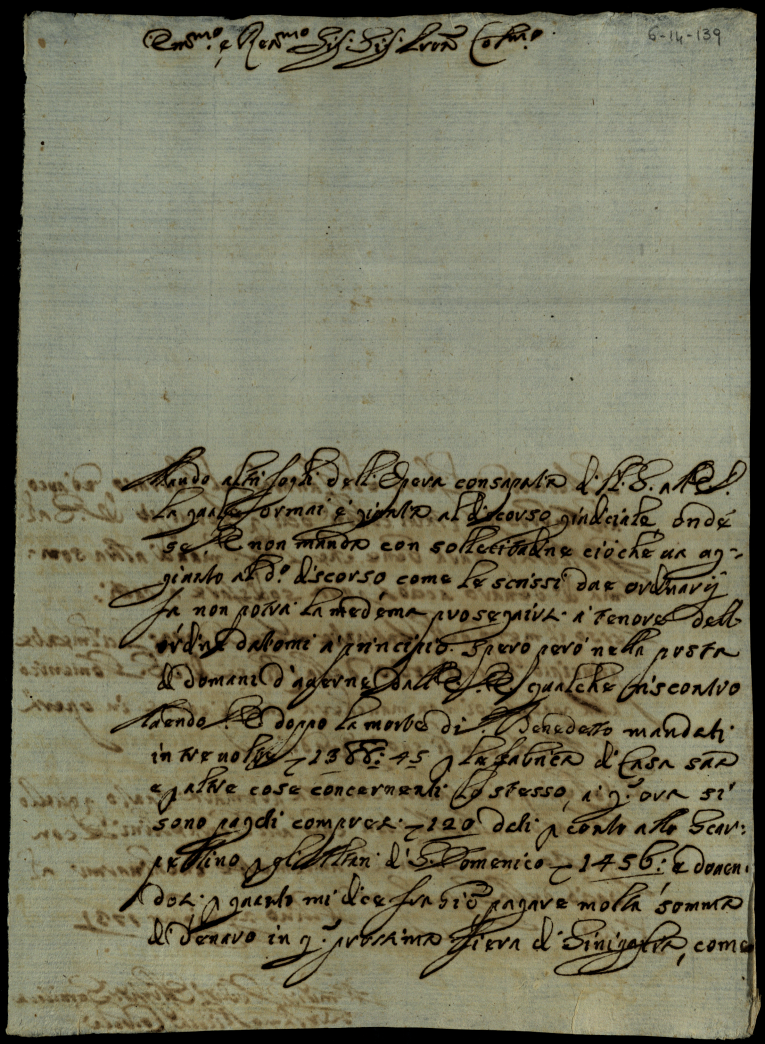 Em.mo e Rev.mo Sig: Sig: Pron Col.mo
6-14-139
Mando altri fogli dell'Opera consaputa di
la quale ormai è gionta al discorso giudiciale, onde
se non manda con sollecitudine ciò che va ag=
gionto al d.o discorso come le scrissi due ordinarij
fa non potrà la medema proseguire a tenore dell'
ordine datomi a principio. Spero però nella posta
di domani d'averne qualche riscontro
Havendo doppo la morte di Benedetto mandati
in tre volte 1388: 45 p la fabrica di Casa sua
e p altre cose concernenti lo stesso, a q.t ora si
sono pagati compresi 120 dati p conto allo Scar:
pellino p gli Altari di S Domenico 1456: e doven:
dosi p quanto mi dice fra Gio pagare molta somma
di denaro in q.a prossima fiera di Sinigaglia, come